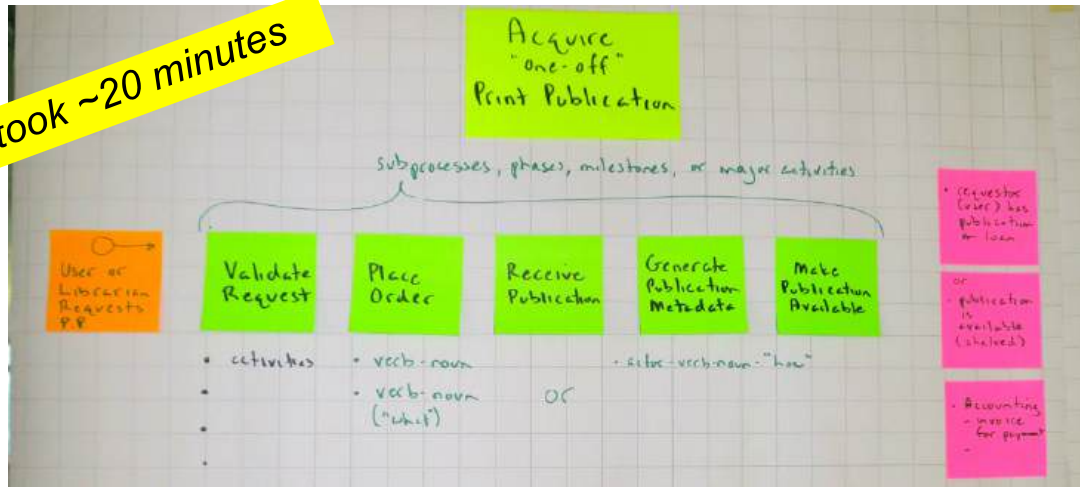 took ~20 minutes
Acquire
"one-off"
Print Publication
subprocesses, phases, milestones, or major activities
User or
Librarian
Requests
P.P.
Validate
Request
Place
Order
Receive
Publication
Generate
Publication
Metadata
Make
Publication
Available
• activities
•
•
•
• verb-noun
• verb-noun
("what")
or
• actor-verb-noun-"how"
• requestor
(user) has
publication
on loan
or
- publication
is
available
(shelved)
- Accounting
- invoice
for payment
-